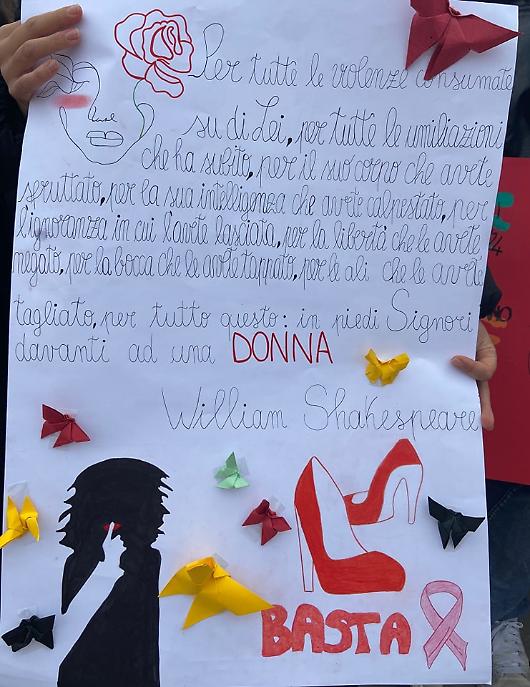 Per tutte le violenze consumate
su di Lei, per tutte le umiliazioni
che ha subito, per il suo corpo che avete
sfruttato, per la sua intelligenza che avete calpestato, per
l'ignoranza in cui l'avete lasciata, per la libertà che le avete
negato, per la bocca che le avete tappato, per le ali che le avete
tagliato, per tutto questo: in piedi Signori
davanti ad una DONNA
William Shakespeare
BASTA